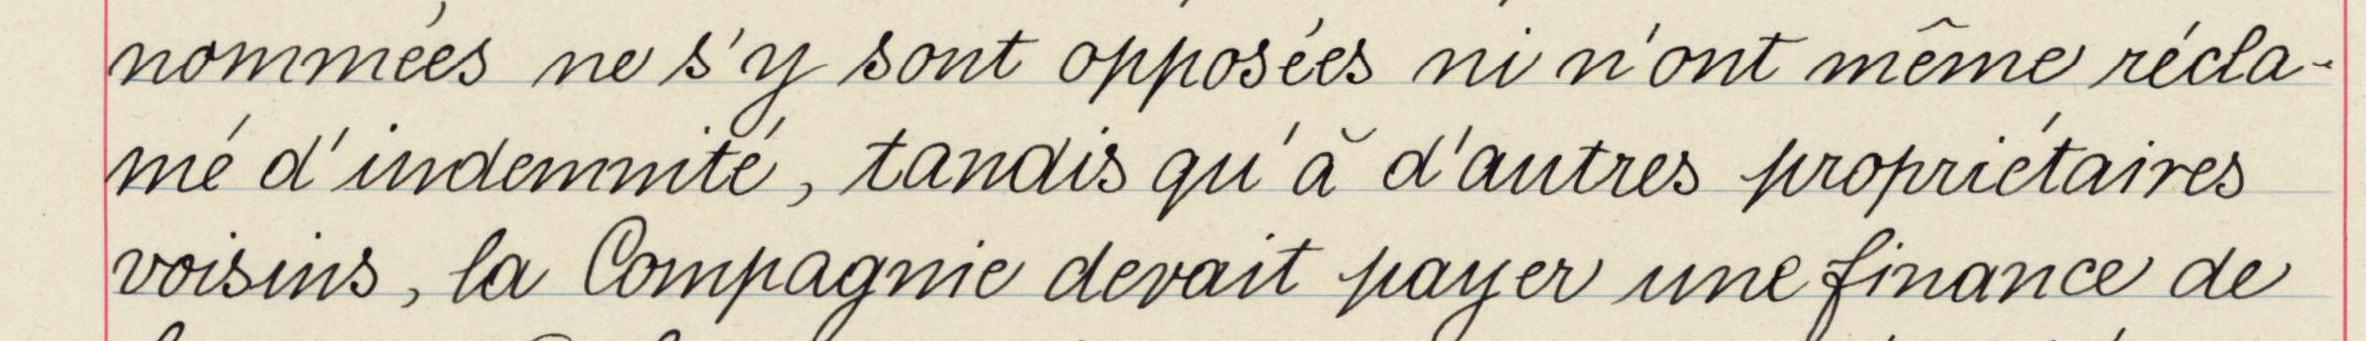 nommées ne s'y sont opposées ni n'ont même récla-
mé d'indemnité, tandis qu'à d'autres propriétaires
voisins, la Compagnie devait payer une finance de